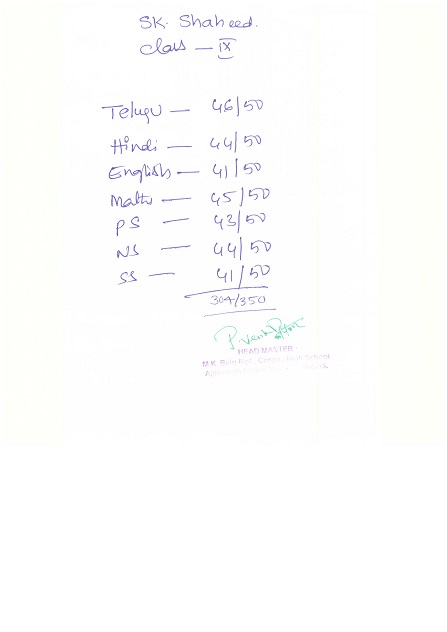 SK. Shaheed.
Class — IX
Telugu — 46/50
Hindi — 44/50
English — 41/50
Maths — 45/50
PS — 43/50
NS — 44/50
SS — 41/50
304/350
HEAD MASTER
M.K. High School